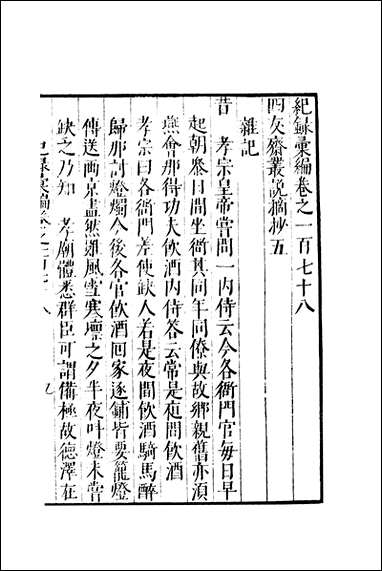 紀録彙編卷之一百七十八
四友齋叢説摘抄五
雜記
昔　孝宗皇帝嘗問一内侍云今各衙門官每日早
起朝參日間坐衙其同年同僚與故鄉親舊亦須
燕會那得功夫飲酒内侍答云常是夜間飲酒
孝宗曰各衙門差使缺人若是夜間飲酒騎馬醉
歸那討燈燭入後各官飲酒回家逐鋪皆要籠燈
傳送兩京盡然雖風雪寒凛之夕半夜叫燈未嘗
缺之乃知　孝廟體悉群臣可謂備極故德澤在